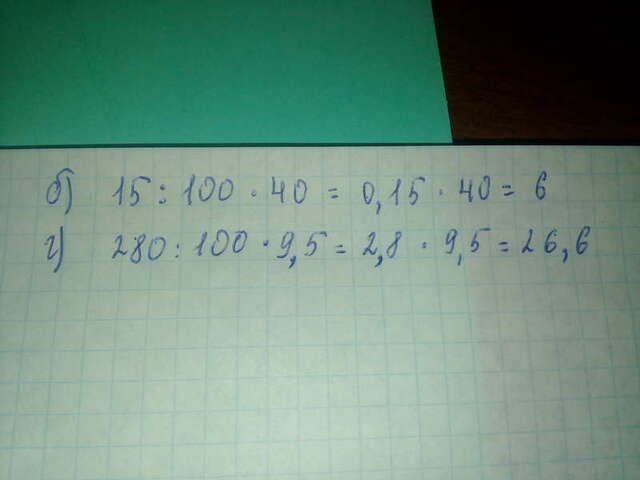 б) 15 : 100 · 40 = 0,15 · 40 = 6
г) 280 : 100 · 9,5 = 2,8 · 9,5 = 26,6